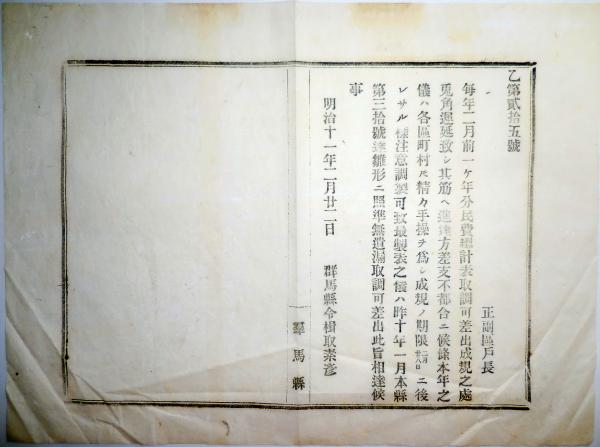 乙第貳拾五號
正副區戸長
每年二月前一ケ年分民費總計表取調可差出成規之處
兎角遲延致シ其筋ヘ進達方差支不都合ニ候條本年之
儀ハ各區町村尺精力手操ヲ爲シ成規ノ期限二月廿八日ニ後
レサル樣注意調製可致最製表之儀ハ昨十年一月本縣
第三拾號達雛形ニ照準無遺漏取調可差出此旨相達候
事
明治十一年二月廿二日
群馬縣令楫取素彥
群馬縣